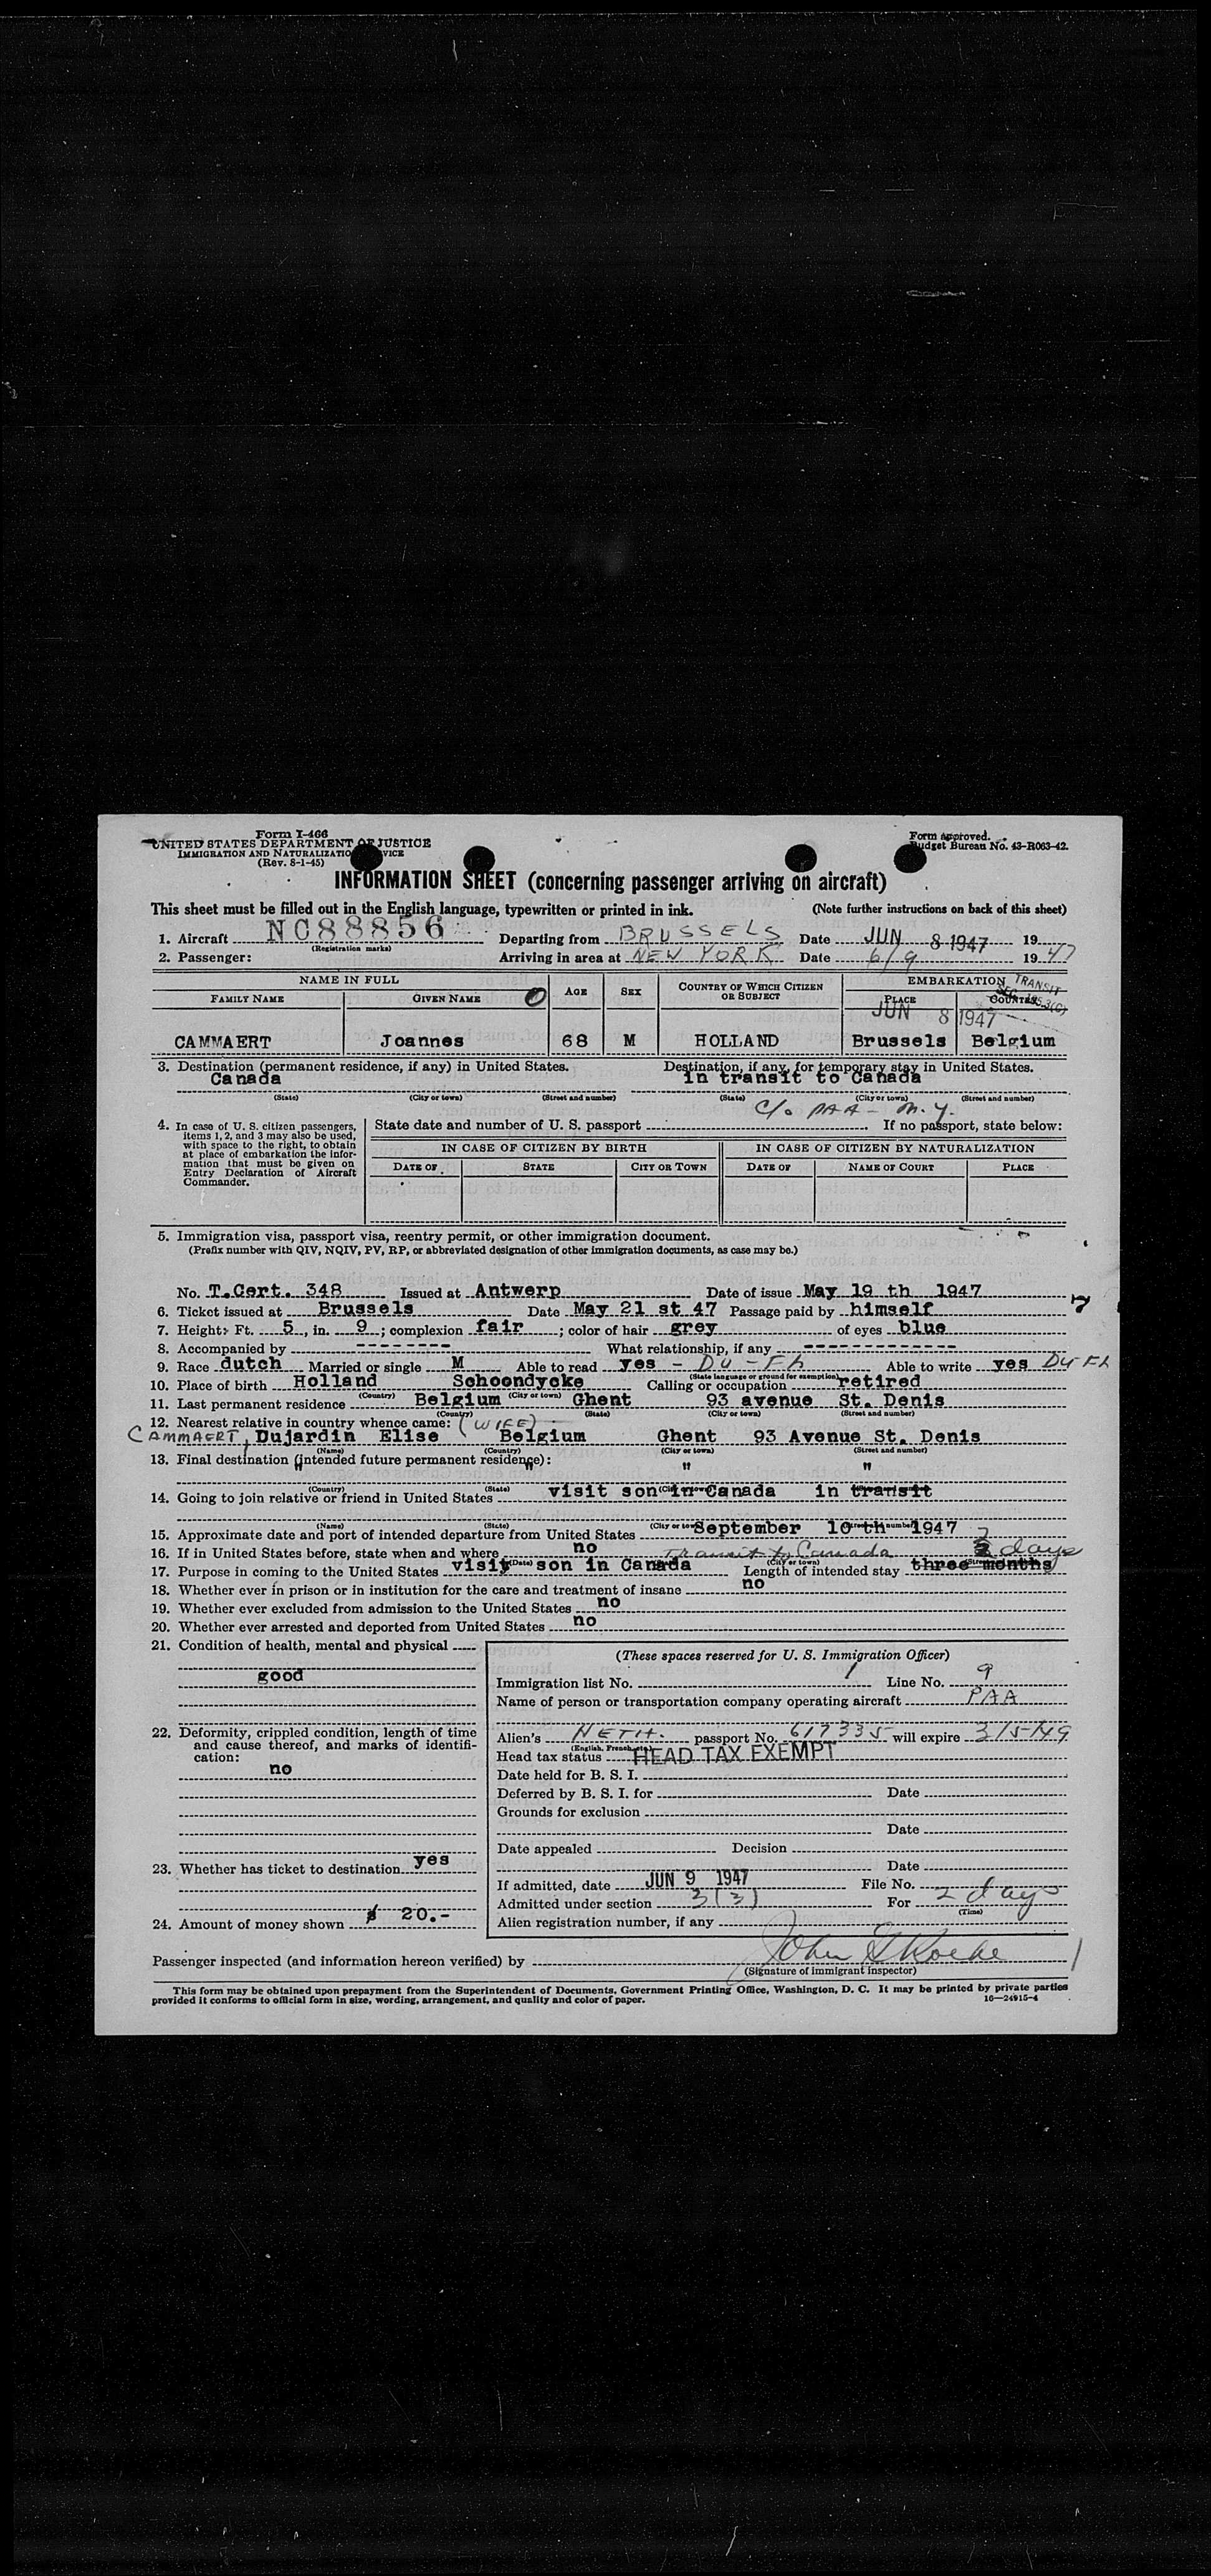 Form I-466
UNITED STATES DEPARTMENT OF JUSTICE
IMMIGRATION AND NATURALIZATION SERVICE
(Rev. 8-1-45)
Form approved.
Budget Bureau No. 43-R063-42.
INFORMATION SHEET (concerning passenger arriving on aircraft)
This sheet must be filled out in the English language, typewritten or printed in ink. (Note further instructions on back of this sheet)
1. Aircraft NC88856 Departing from BRUSSELS Date JUN 8 1947 19
(Registration marks)
2. Passenger: Arriving in area at NEW YORK Date 6/9 1947
NAME IN FULL AGE SEX COUNTRY OF WHICH CITIZEN OR SUBJECT EMBARKATION TRANSIT
FAMILY NAME GIVEN NAME PLACE COUNTRY
JUN 8 1947
CAMMAERT Joannes 68 M HOLLAND Brussels Belgium
3. Destination (permanent residence, if any) in United States. Destination, if any, for temporary stay in United States.
Canada in transit to Canada
(State) (City or town) (Street and number) (State) (City or town) (Street and number)
c/o PAA - N.Y.
4. In case of U. S. citizen passengers, items 1, 2, and 3 may also be used, with space to the right, to obtain at place of embarkation the information that must be given on Entry Declaration of Aircraft Commander.
State date and number of U. S. passport If no passport, state below:
IN CASE OF CITIZEN BY BIRTH IN CASE OF CITIZEN BY NATURALIZATION
DATE OF STATE CITY OR TOWN DATE OF NAME OF COURT PLACE
5. Immigration visa, passport visa, reentry permit, or other immigration document.
(Prefix number with QIV, NQIV, PV, RP, or abbreviated designation of other immigration documents, as case may be.)
No. T.Cert. 348 Issued at Antwerp Date of issue May 19 th 1947
6. Ticket issued at Brussels Date May 21 st 47 Passage paid by himself 7
7. Height: Ft. 5, in. 9; complexion fair; color of hair grey of eyes blue
8. Accompanied by -------- What relationship, if any -------------
9. Race dutch Married or single M Able to read yes - DU - Fh Able to write yes DU Fh
(State language or ground for exemption)
10. Place of birth Holland Schoondycke Calling or occupation retired
(Country) (City or town)
11. Last permanent residence Belgium Ghent 93 avenue St. Denis
(Country) (State) (City or town) (Street and number)
12. Nearest relative in country whence came: (WIFE)
CAMMAERT, Dujardin Elise Belgium Ghent 93 Avenue St. Denis
(Name) (Country) (City or town) (Street and number)
13. Final destination (intended future permanent residence):
" " " "
(Country) (State) (City or town) (Street and number)
14. Going to join relative or friend in United States visit son in Canada in transit
(Name) (State) (City or town) (Street and number)
15. Approximate date and port of intended departure from United States September 10 th 1947
16. If in United States before, state when and where no transit to Canada 2 days
(Date) (City or town)
17. Purpose in coming to the United States visit son in Canada Length of intended stay three months
18. Whether ever in prison or in institution for the care and treatment of insane no
19. Whether ever excluded from admission to the United States no
20. Whether ever arrested and deported from United States no
21. Condition of health, mental and physical
good
22. Deformity, crippled condition, length of time and cause thereof, and marks of identification:
no
23. Whether has ticket to destination yes
24. Amount of money shown $ 20.-
(These spaces reserved for U. S. Immigration Officer)
Immigration list No. 1 Line No. 9
Name of person or transportation company operating aircraft PAA
Alien's NETH. passport No. 617335 will expire 3/5/49
(English, French, etc.)
Head tax status HEAD TAX EXEMPT
Date held for B. S. I.
Deferred by B. S. I. for Date
Grounds for exclusion
Date
Date appealed Decision
Date
If admitted, date JUN 9 1947 File No.
Admitted under section 3(3) For 2 days
(Time)
Alien registration number, if any
Passenger inspected (and information hereon verified) by John
(Signature of immigrant inspector)
This form may be obtained upon prepayment from the Superintendent of Documents, Government Printing Office, Washington, D. C. It may be printed by private parties
provided it conforms to official form in size, wording, arrangement, and quality and color of paper. 16—24915-4